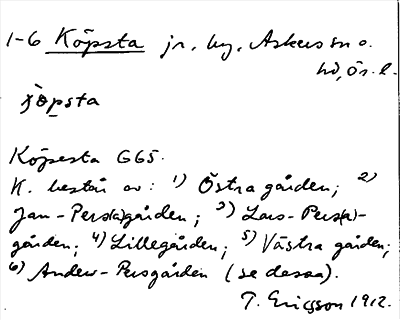 1-6 Köpsta jr, by, Askers sn o.
hd, Ör. l.
Köpsta G65.
K. består av: 1) Östra gården; 2)
Jan-Pers(a)gården; 3) Lars-Pers(a)-
gården; 4) Lillegården; 5) Västra gården;
6) Anders-Persgården (se dessa).
T. Ericsson 1912.